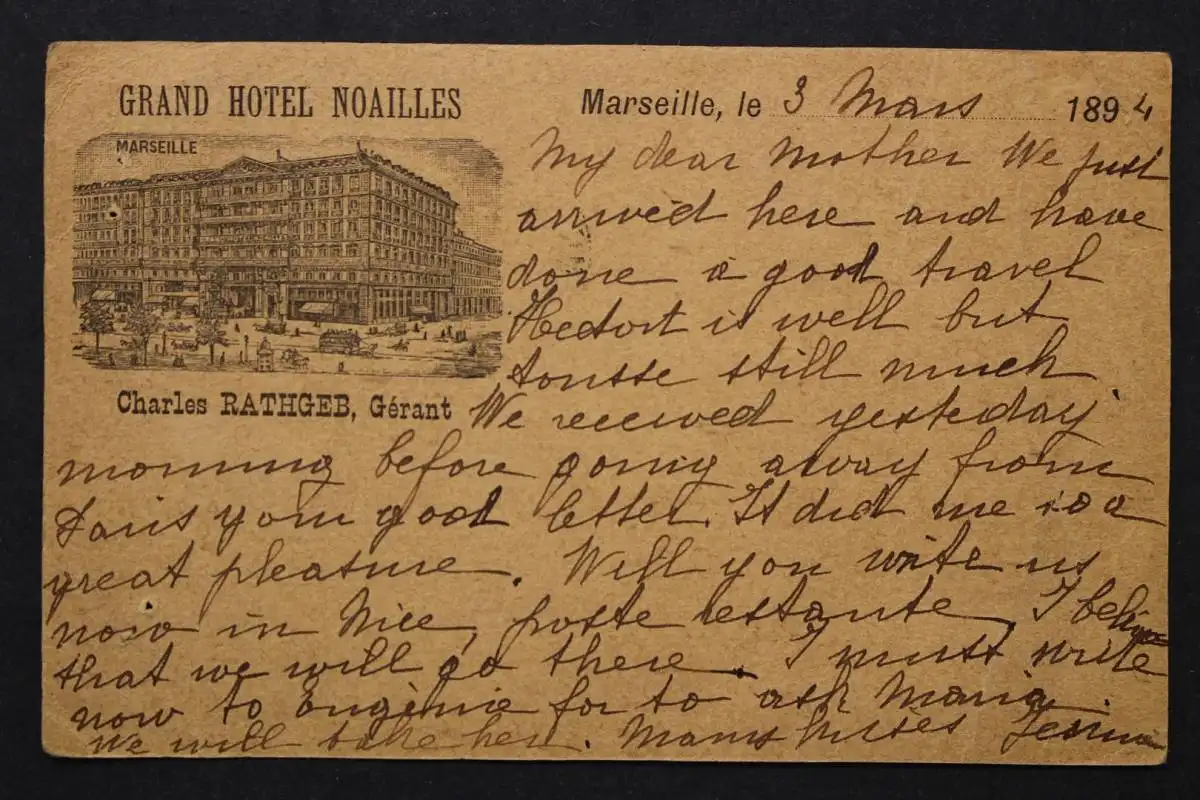 GRAND HOTEL NOAILLES
MARSEILLE
Charles RATHGEB, Gérant
Marseille, le 3 Mars 1894
My dear Mother We just
arrived here and have
done a good travel
Hector is well but
tousse still much
We received yesteday
morning before going away from
Paris your good letter. It did me so a
great pleasure. Will you write us
now in Nice, poste restante, I believe
that we will go there. I must write
now to Eugénie for to ask Maria.
We will take her. Many kisses